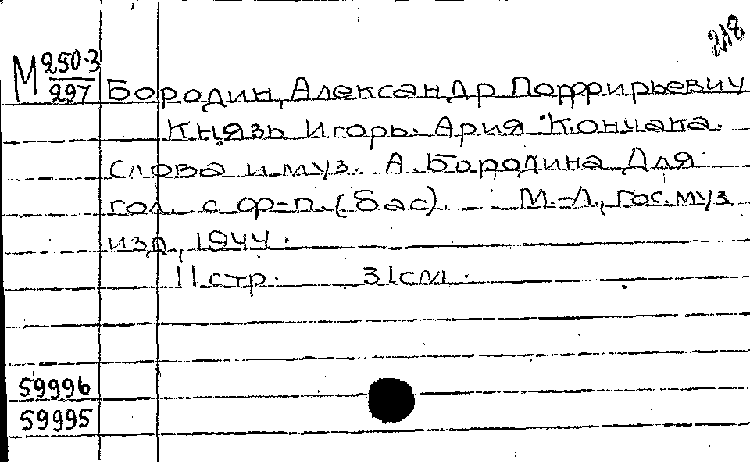 218
М 250-3
297 Бородин, Александр Порфирьевич
Князь Игорь. Ария Кончака.
Слова и муз. А. Бородина Для
гол. с ф-п. (бас). М.-Л., Гос. муз
изд., 1944.
11 стр. 31 см.
59996
59995